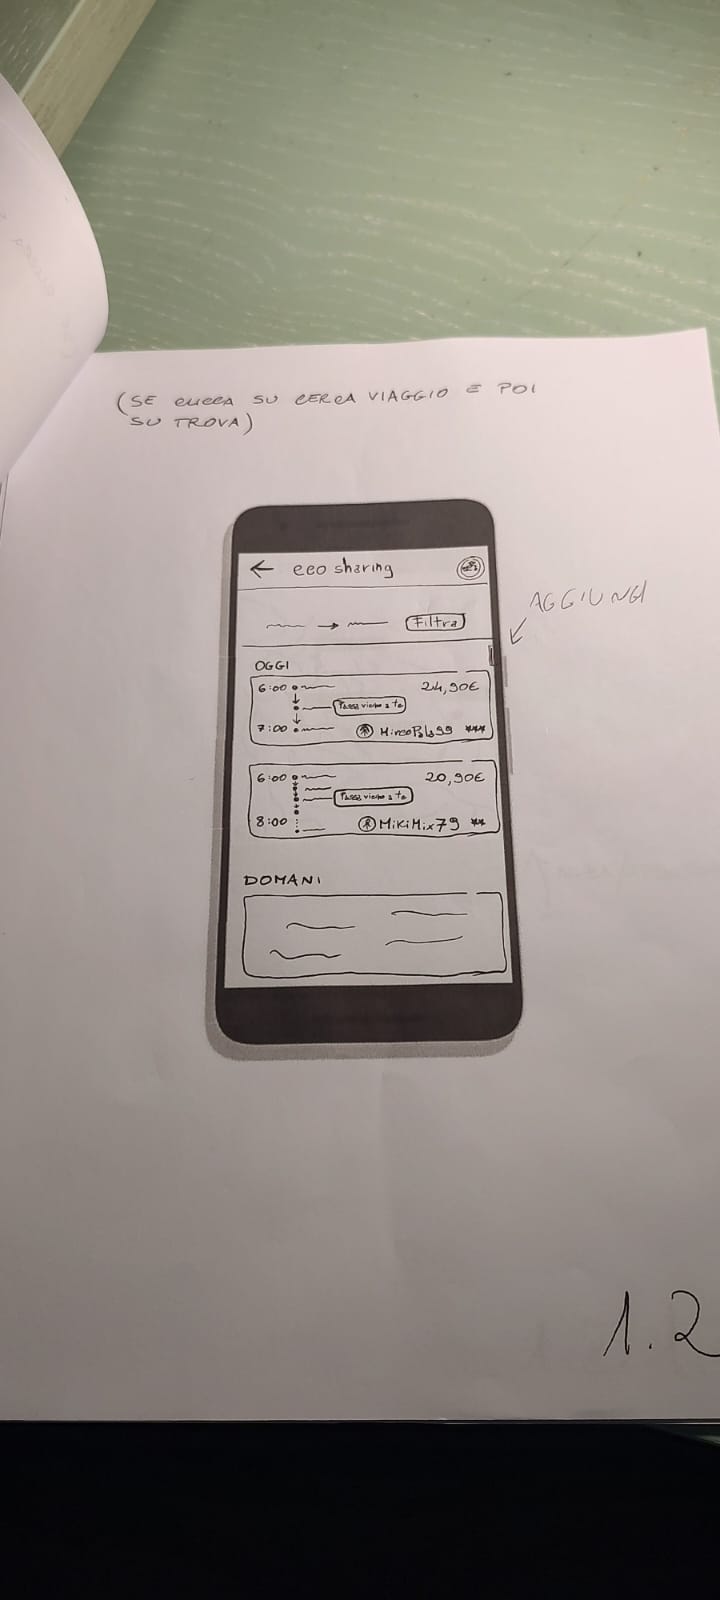 (SE CLICCA SU CERCA VIAGGIO E POI
SU TROVA)
← eco sharing
→ Filtra
AGGIUNGI
OGGI
6:00 24,90€
Passa vicino a te
7:00 MircoPala99 ***
6:00 20,90€
Passa vicino a te
8:00 MikiMix79 **
DOMANI
1.2